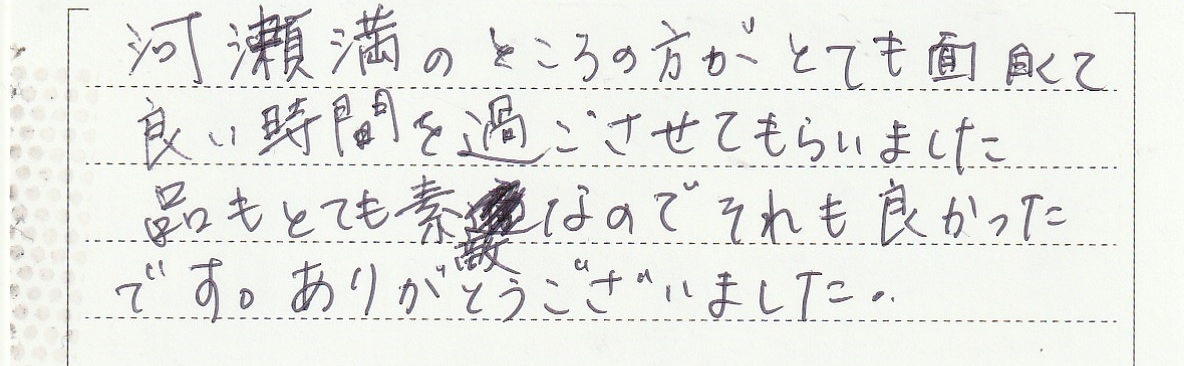 河瀬満のところの方がとても面白くて
良い時間を過ごさせてもらいました
品もとても素敵なのでそれも良かった
です。ありがとうございました。